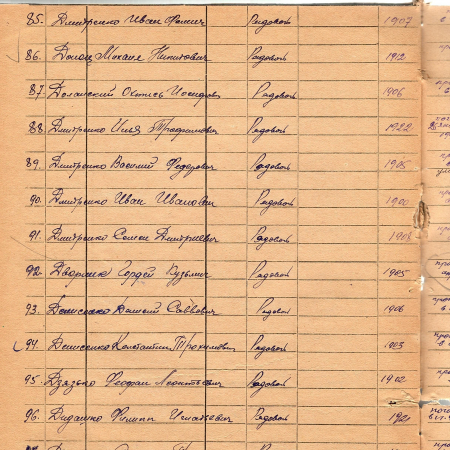 85. Дмитренко Иван Фомич Рядовой 1907
86. Михаил Никитович Рядовой 1912
87. Остап Иосифов Рядовой 1906
88. Дмитренко Илья Трофимович Рядовой 1922
89. Дмитренко Василий Федорович Рядовой 1925
90. Дмитренко Иван Иванович Рядовой 1900
91. Дмитренко Семен Дмитриевич Рядовой
92. Сергей Кузьмич Рядовой 1905
93. Денисенко Саввович Рядовой 1906
94. Денисенко Константин Трохимович Рядовой 1903
95. Дзязько Феофан Леонтьевич Рядовой 1902
96. Дидашко Филипп Игнатьевич Рядовой 1921